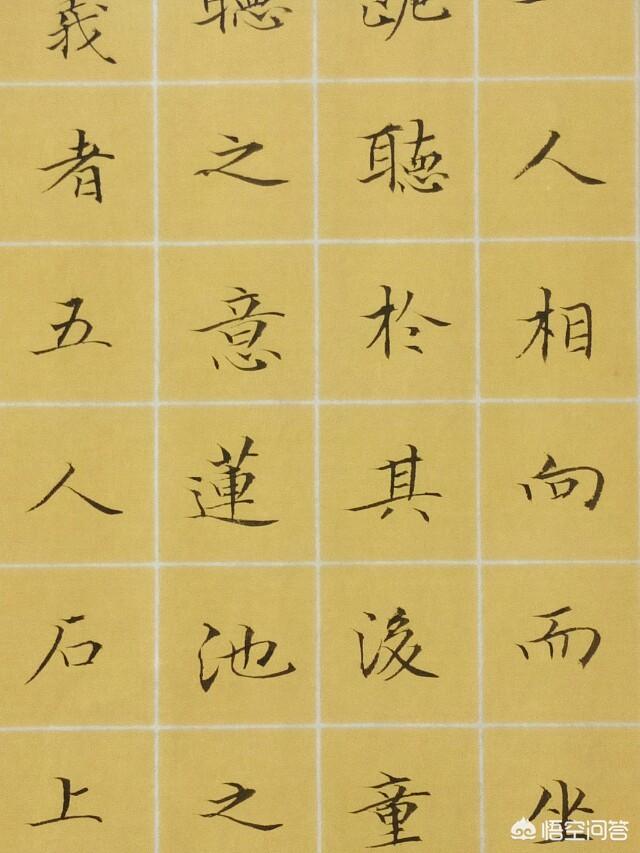 人相向而坐
跪聽於其後童
聽之意蓮池之
義者五人石上
悟空问答